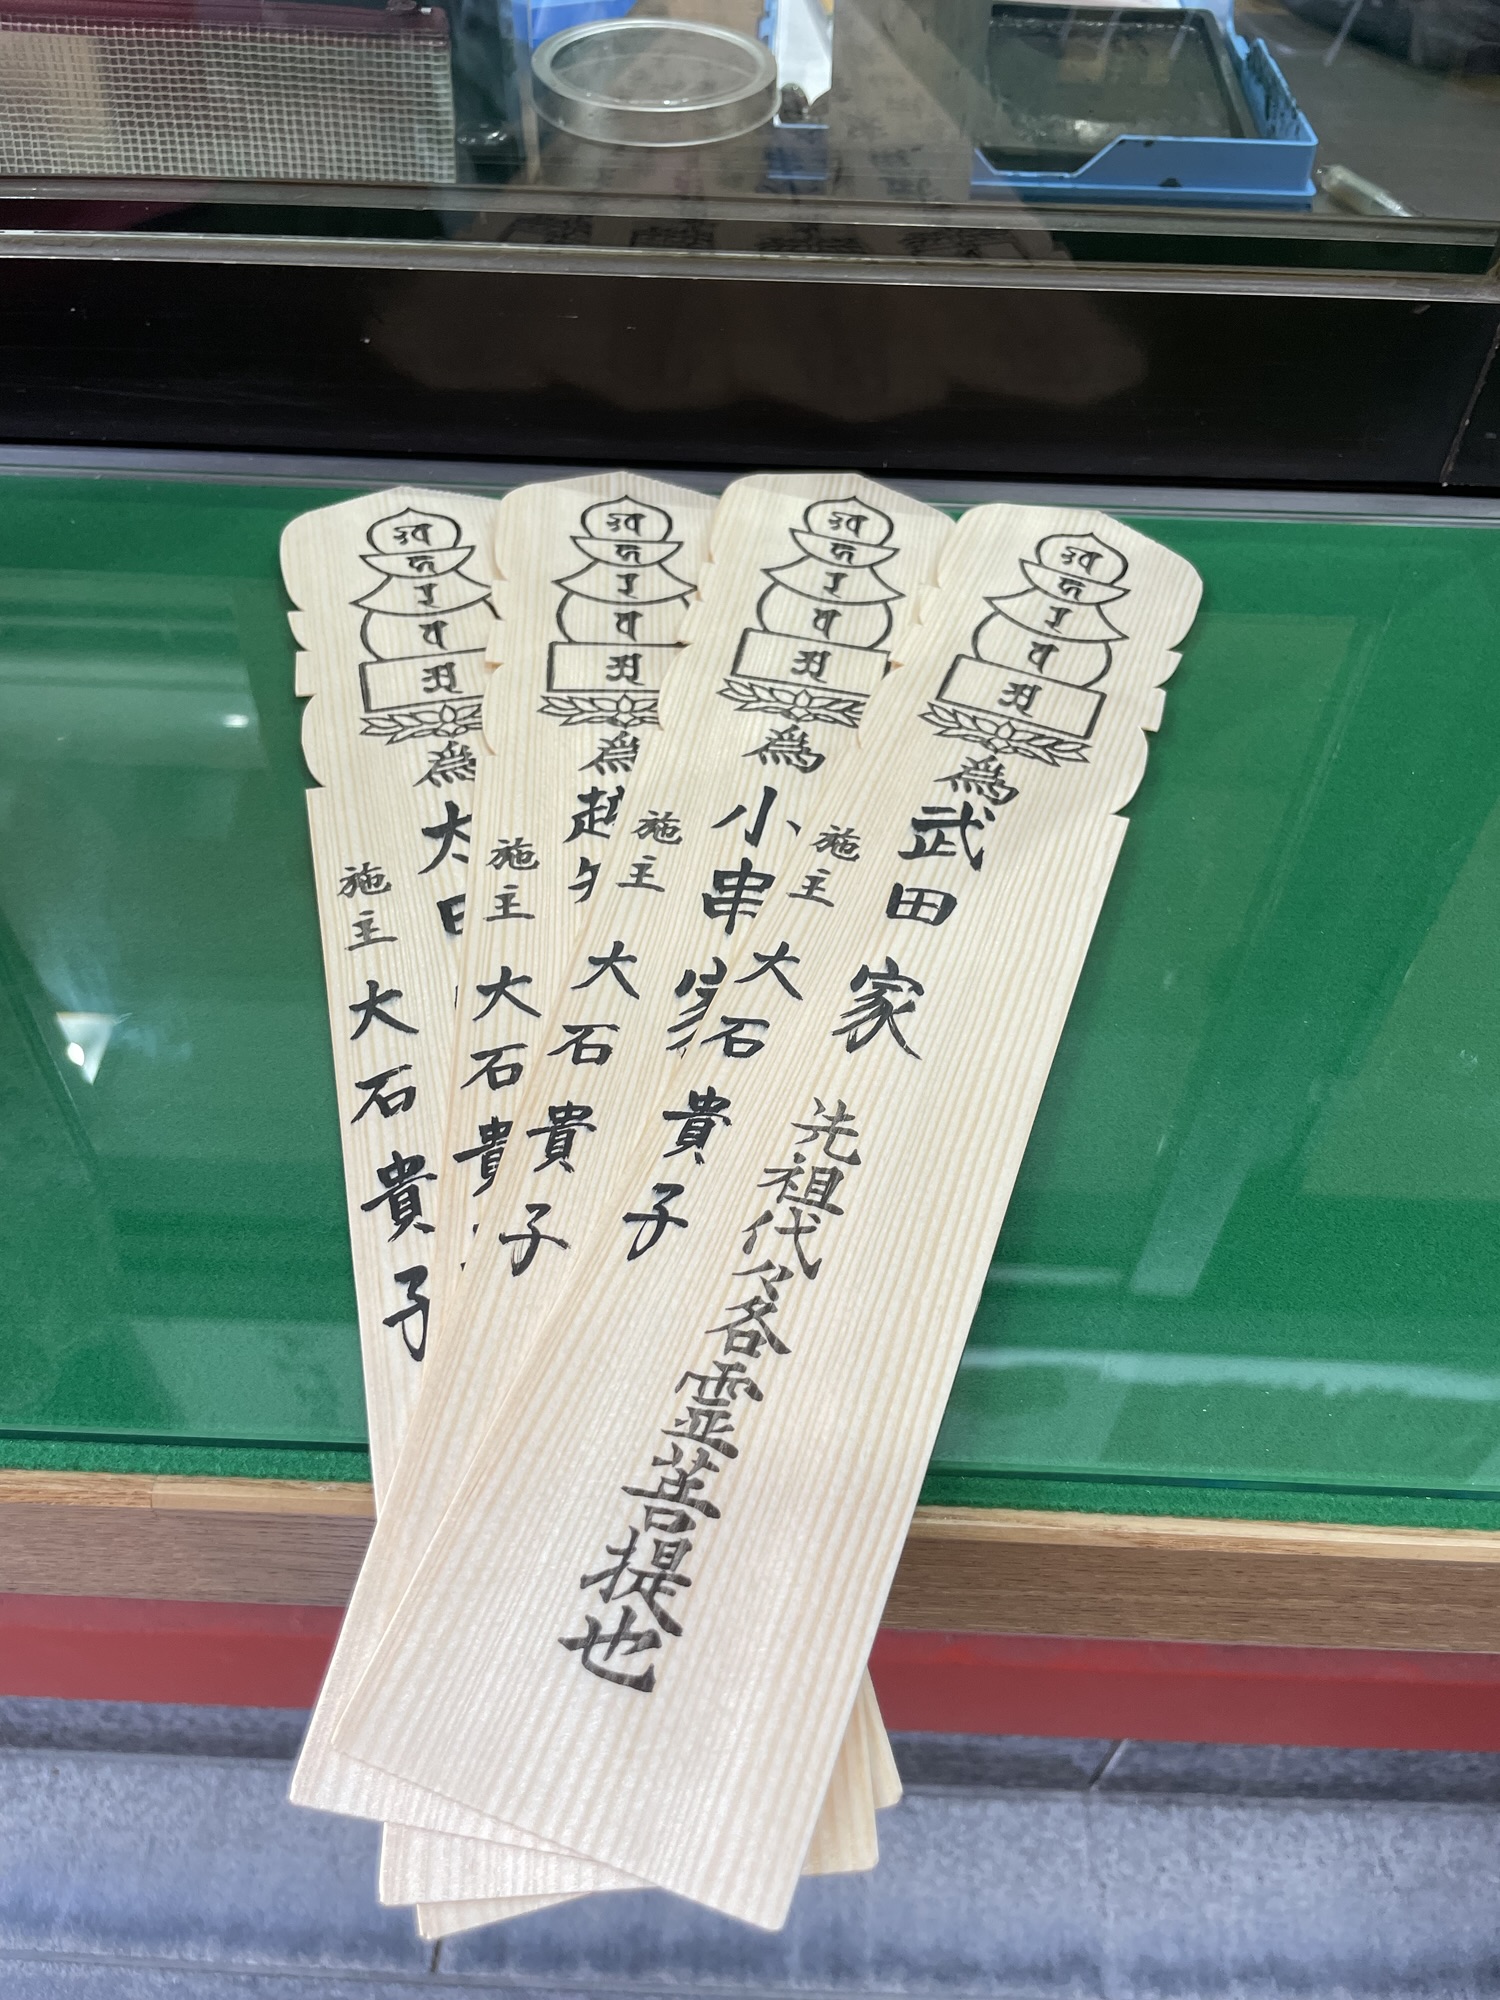 為武田家 先祖代々各霊菩提也
施主 大石貴子
為小串家
施主 大石貴子
為越
施主 大石貴
為太田
施主 大石貴子